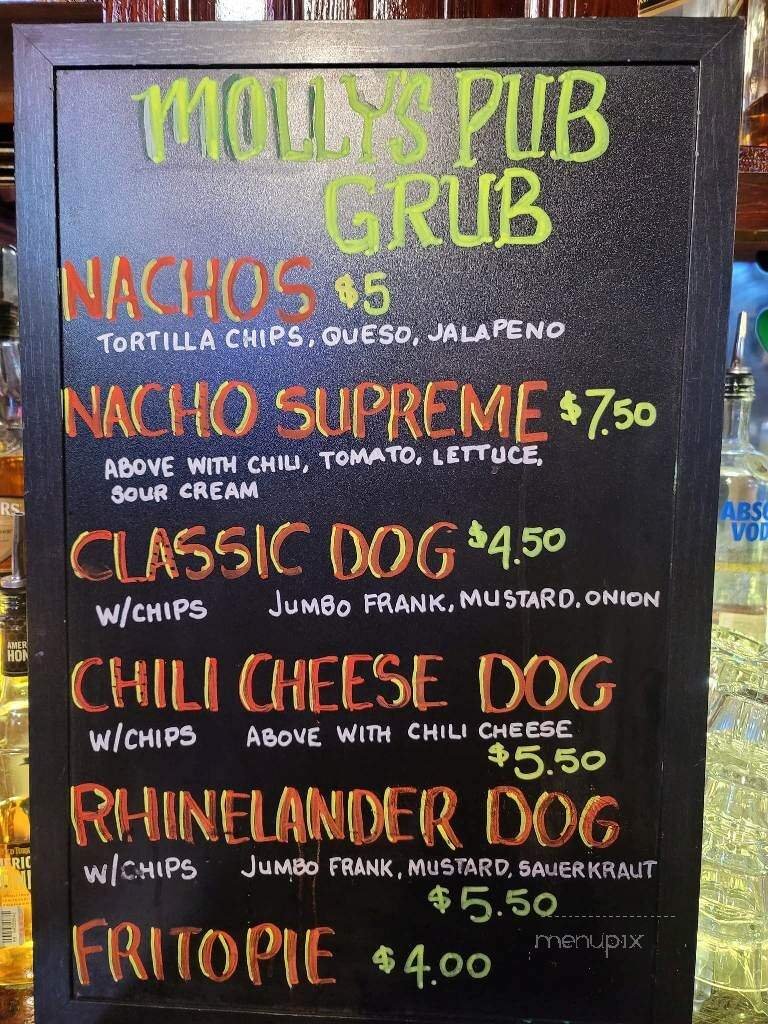 MOLLY'S PUB
GRUB
NACHOS $5
TORTILLA CHIPS, QUESO, JALAPENO
NACHO SUPREME $7.50
ABOVE WITH CHILI, TOMATO, LETTUCE,
SOUR CREAM
CLASSIC DOG $4.50
W/CHIPS JUMBO FRANK, MUSTARD, ONION
CHILI CHEESE DOG
W/CHIPS ABOVE WITH CHILI CHEESE
$5.50
RHINELANDER DOG
W/CHIPS JUMBO FRANK, MUSTARD, SAUERKRAUT
$5.50
FRITO PIE $4.00
menupix
ABSO
VOD
AMER
HON